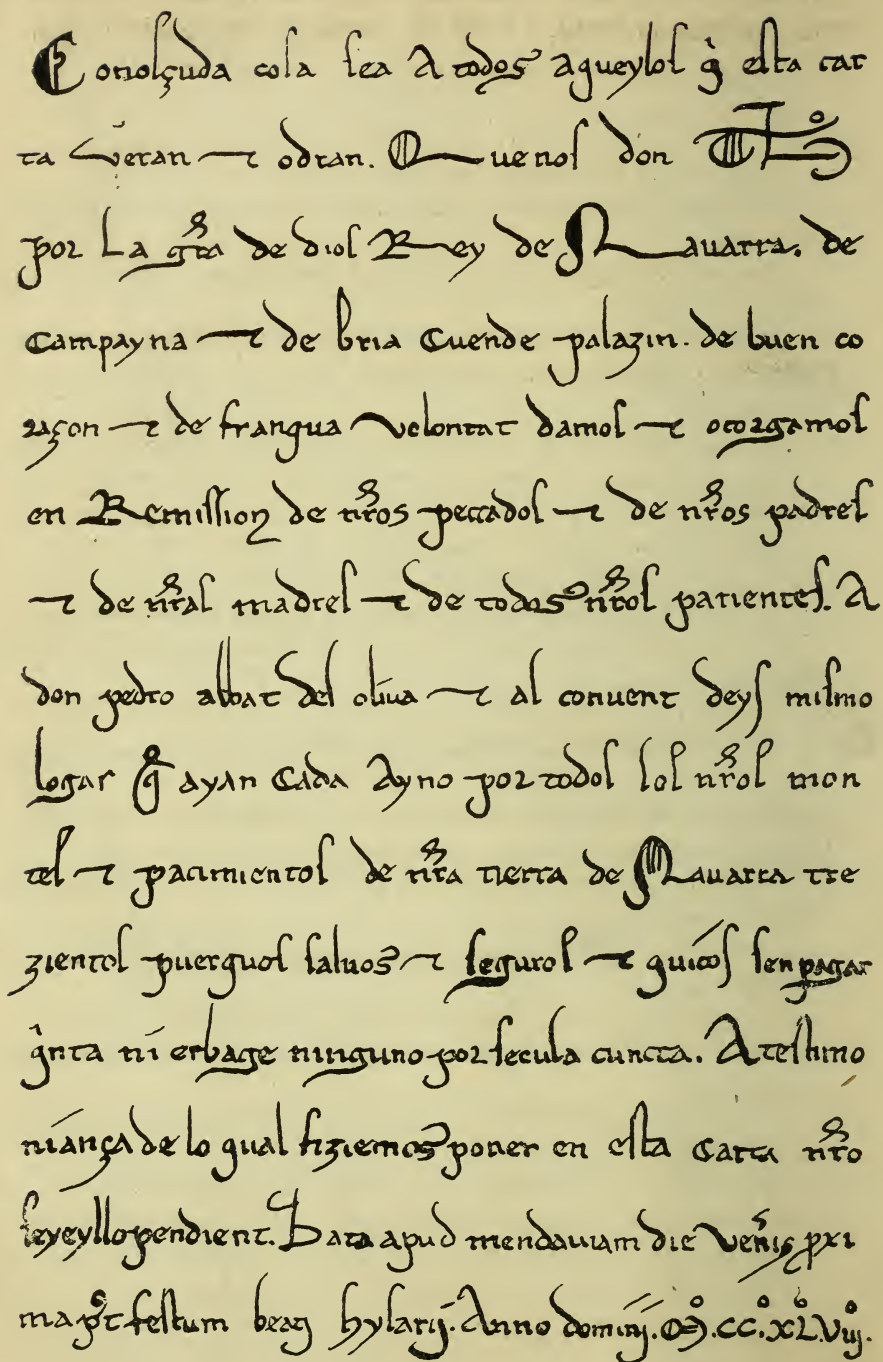 Conosçuda cosa sea A todos aqueylos q̇ esta car
ta veran ⁊ odran. Que nos don Th̊
por La gr̃a de dios Rey de Nauarra. de
Campayna ⁊ de bria Cuende palazin. de buen co
raçon ⁊ de franqua velontat damos ⁊ otorgamos
en Remission de nr̃os peccados ⁊ de nr̃os padres
⁊ de nr̃as madres ⁊ de todos nr̃os parientes. A
don pedro abbat del oliua ⁊ al conuent deys mismo
logar q̃ ayan Cada Ayno por todos los nr̃os mon
tes ⁊ pacimientos de nr̃a tierra de Nauarra tre
zientos puerquos saluos ⁊ seguros ⁊ quitos sen pagar
q̇nta ni erbage ninguno por secula cuncta. A testimo
niança de lo qual fiziemos poner en esta Carta nr̃o
seyeyllo pendient. Data apud mendauiam die ven̄is p̱xi
ma p̃t festum beati hylarij. Anno domini. M̊. CC̊. XL̊. Viij̊.